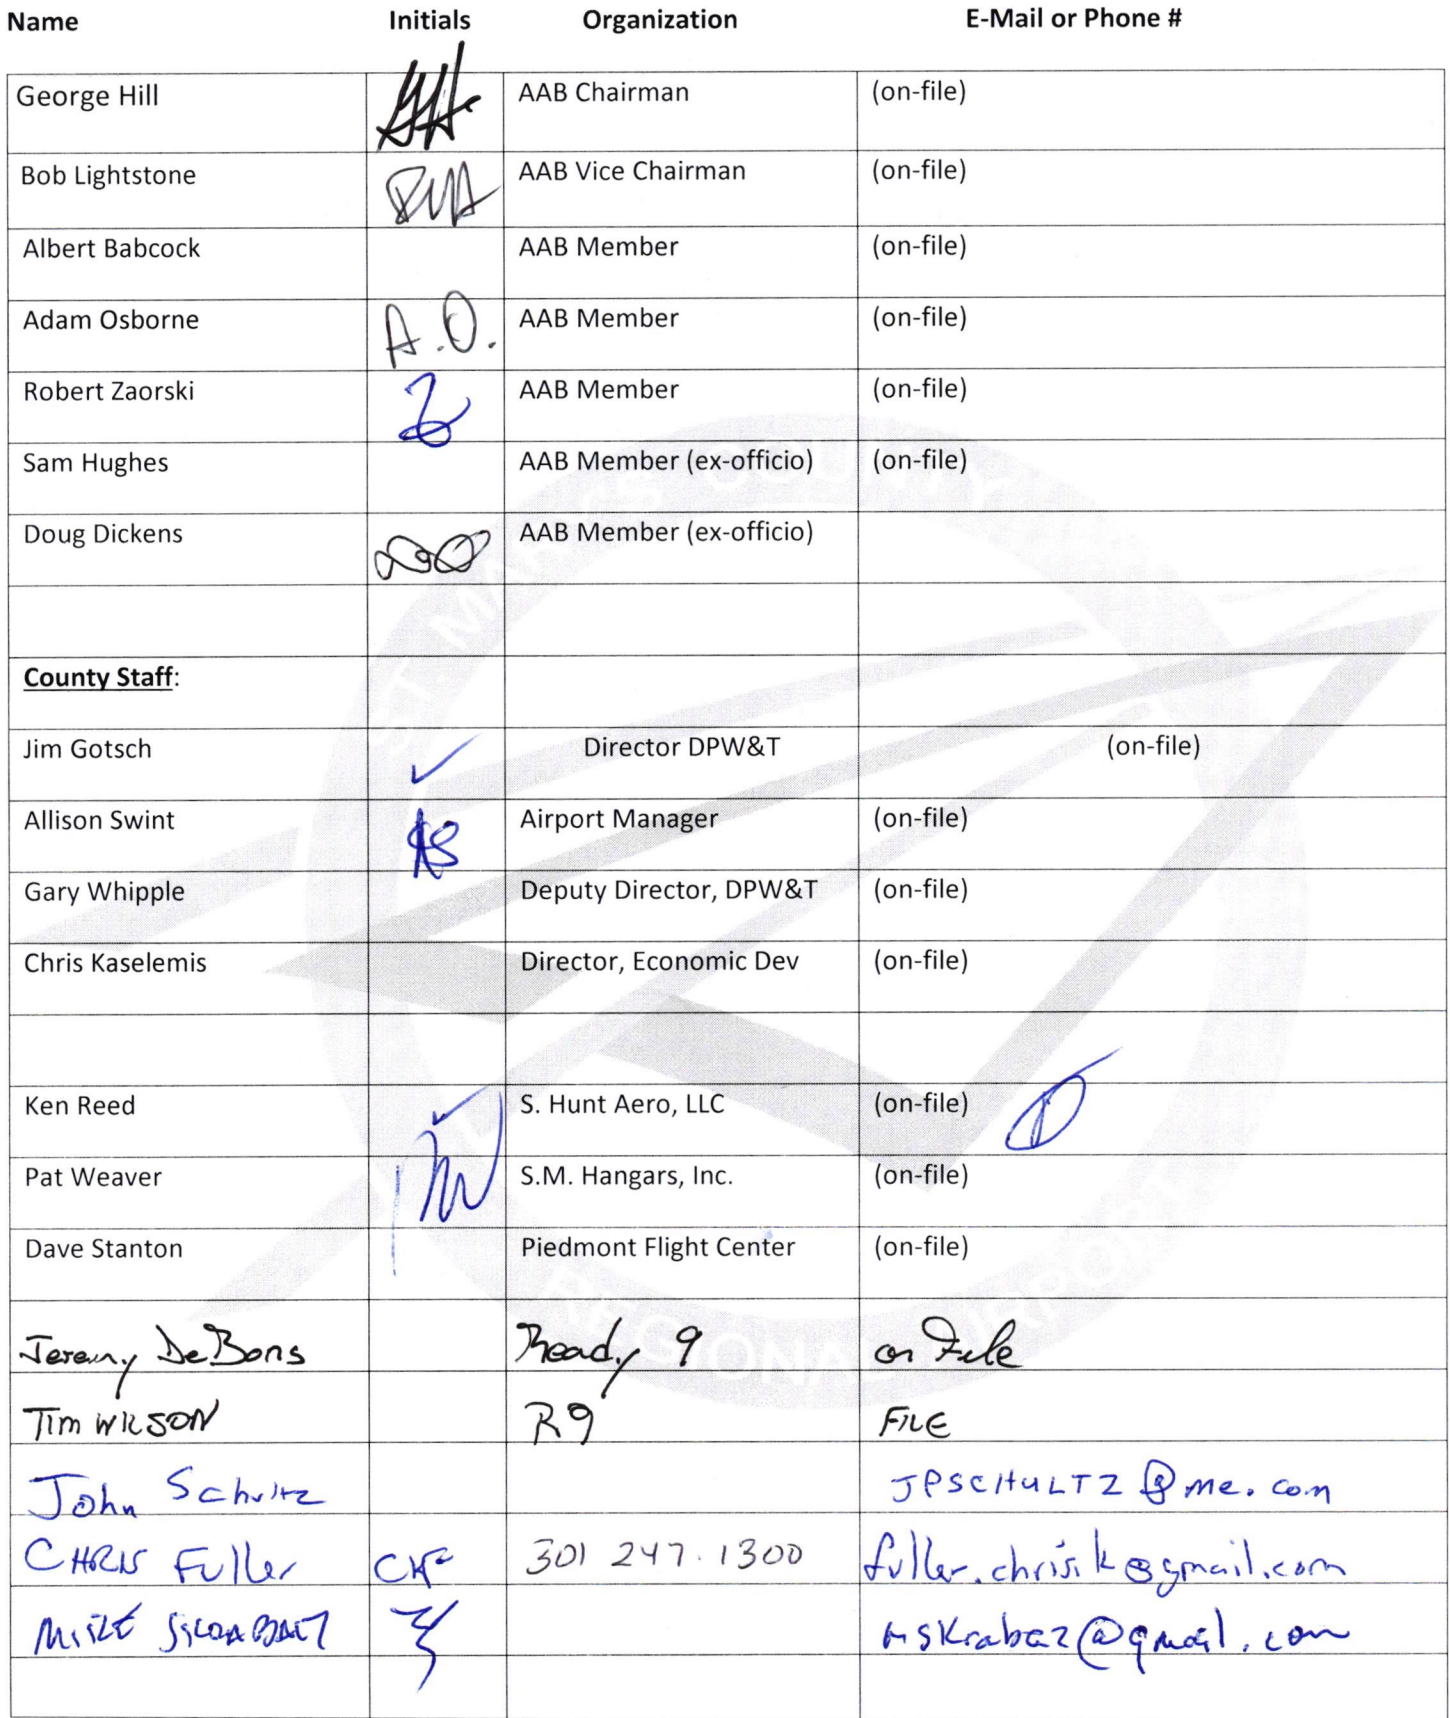 Name Initials Organization E-Mail or Phone #
George Hill GH AAB Chairman (on-file)
Bob Lightstone AAB Vice Chairman (on-file)
Albert Babcock AAB Member (on-file)
Adam Osborne A.O. AAB Member (on-file)
Robert Zaorski AAB Member (on-file)
Sam Hughes AAB Member (ex-officio) (on-file)
Doug Dickens AAB Member (ex-officio)
County Staff:
Jim Gotsch ✓ Director DPW&T (on-file)
Allison Swint AS Airport Manager (on-file)
Gary Whipple Deputy Director, DPW&T (on-file)
Chris Kaselemis Director, Economic Dev (on-file)
Ken Reed ✓ S. Hunt Aero, LLC (on-file)
Pat Weaver S.M. Hangars, Inc. (on-file)
Dave Stanton Piedmont Flight Center (on-file)
Jeremy DeBons Ready 9 on File
Tim WILSON R9 FILE
John Schultz JPSCHULTZ@me.com
CHRIS Fuller CKF 301 247.1300 fuller.chris.k@gmail.com
MIKE mskrabaz@gmail.com
ST. MARY'S COUNTY
REGIONAL AIRPORT